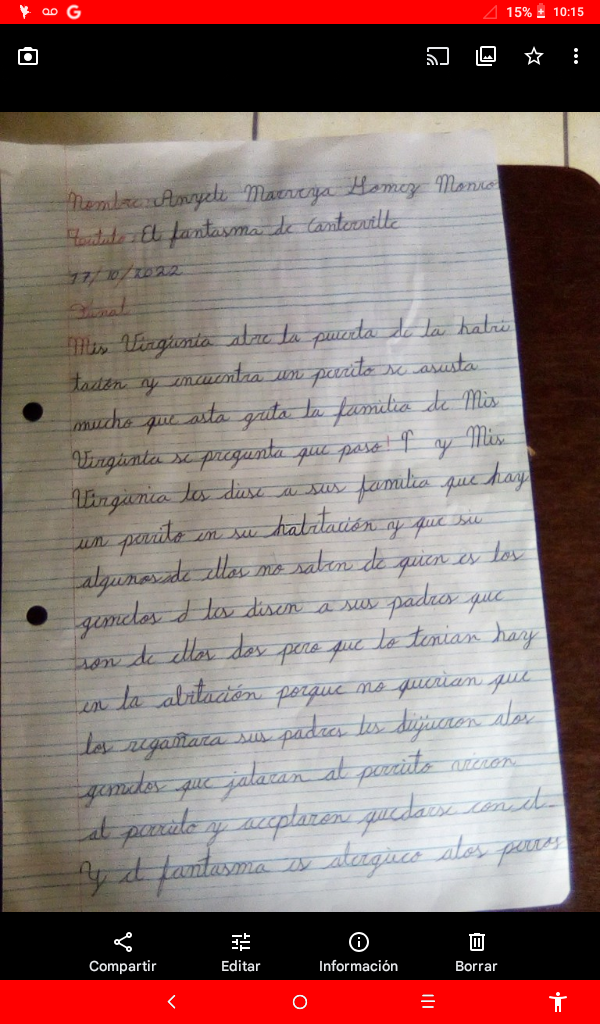 15% 10:15
Nombre: Anyeli Mareya Gomez Monro
Toutulo: El fantasma de Canterville
17/10/2022
Final
Mis Virgúnia abre la puerta de la habri
tación y encuentra un perrito se asusta
mucho que asta grita la familia de Mis
Virgúnia se pregunta que paso! ? y Mis
Virgúnia les duse a sus familia que hay
un perrito en su habitación y que su
algunos de ellos no saben de quien es los
gemelos d les disen a sus padres que
son de ellos dos pero que lo tenian hay
en la abitación porque no querian que
los regañara sus padres les dijueron alos
gemelos que jalaran al perruito vieron
al perruito y aceptaron quedarse con el-
Y el fantasma es alergiuco alos perros
Compartir Editar Información Borrar